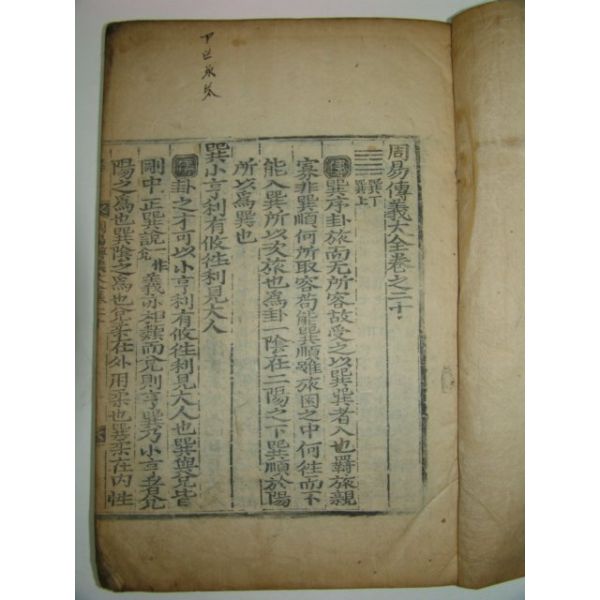 周易傳義大全卷之二十
巽下
巽上
傳 巽序卦旅而无所容故受之以巽巽者入也羇旅親
寡非巽順何所取容苟能巽順雖旅困之中何徃而不
能入巽所以次旅也爲卦一陰在二陽之下巽順於陽
所以爲巽也
巽小亨利有攸徃利見大人
傳 卦之才可以小亨利有攸徃利見大人也巽與兌皆
剛中正巽說義亦相類而兌則亨巽乃小亨者兌
陽之爲也巽陰之爲也兌柔在外用柔也巽柔在內性